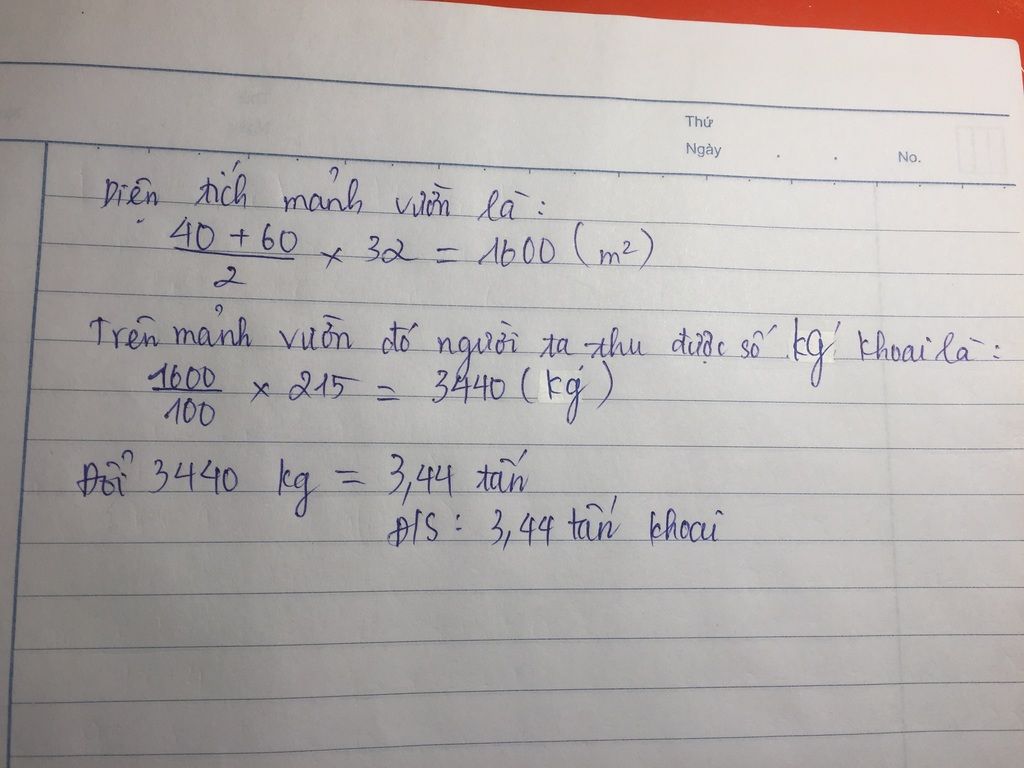 Thứ
Ngày . . No.
Diện tích mảnh vườn là:
40 + 60 / 2 × 32 = 1600 (m²)
Trên mảnh vườn đó người ta thu được số kg khoai là:
1600 / 100 × 215 = 3440 (kg)
Đổi 3440 kg = 3,44 tấn
Đ/S: 3,44 tấn khoai